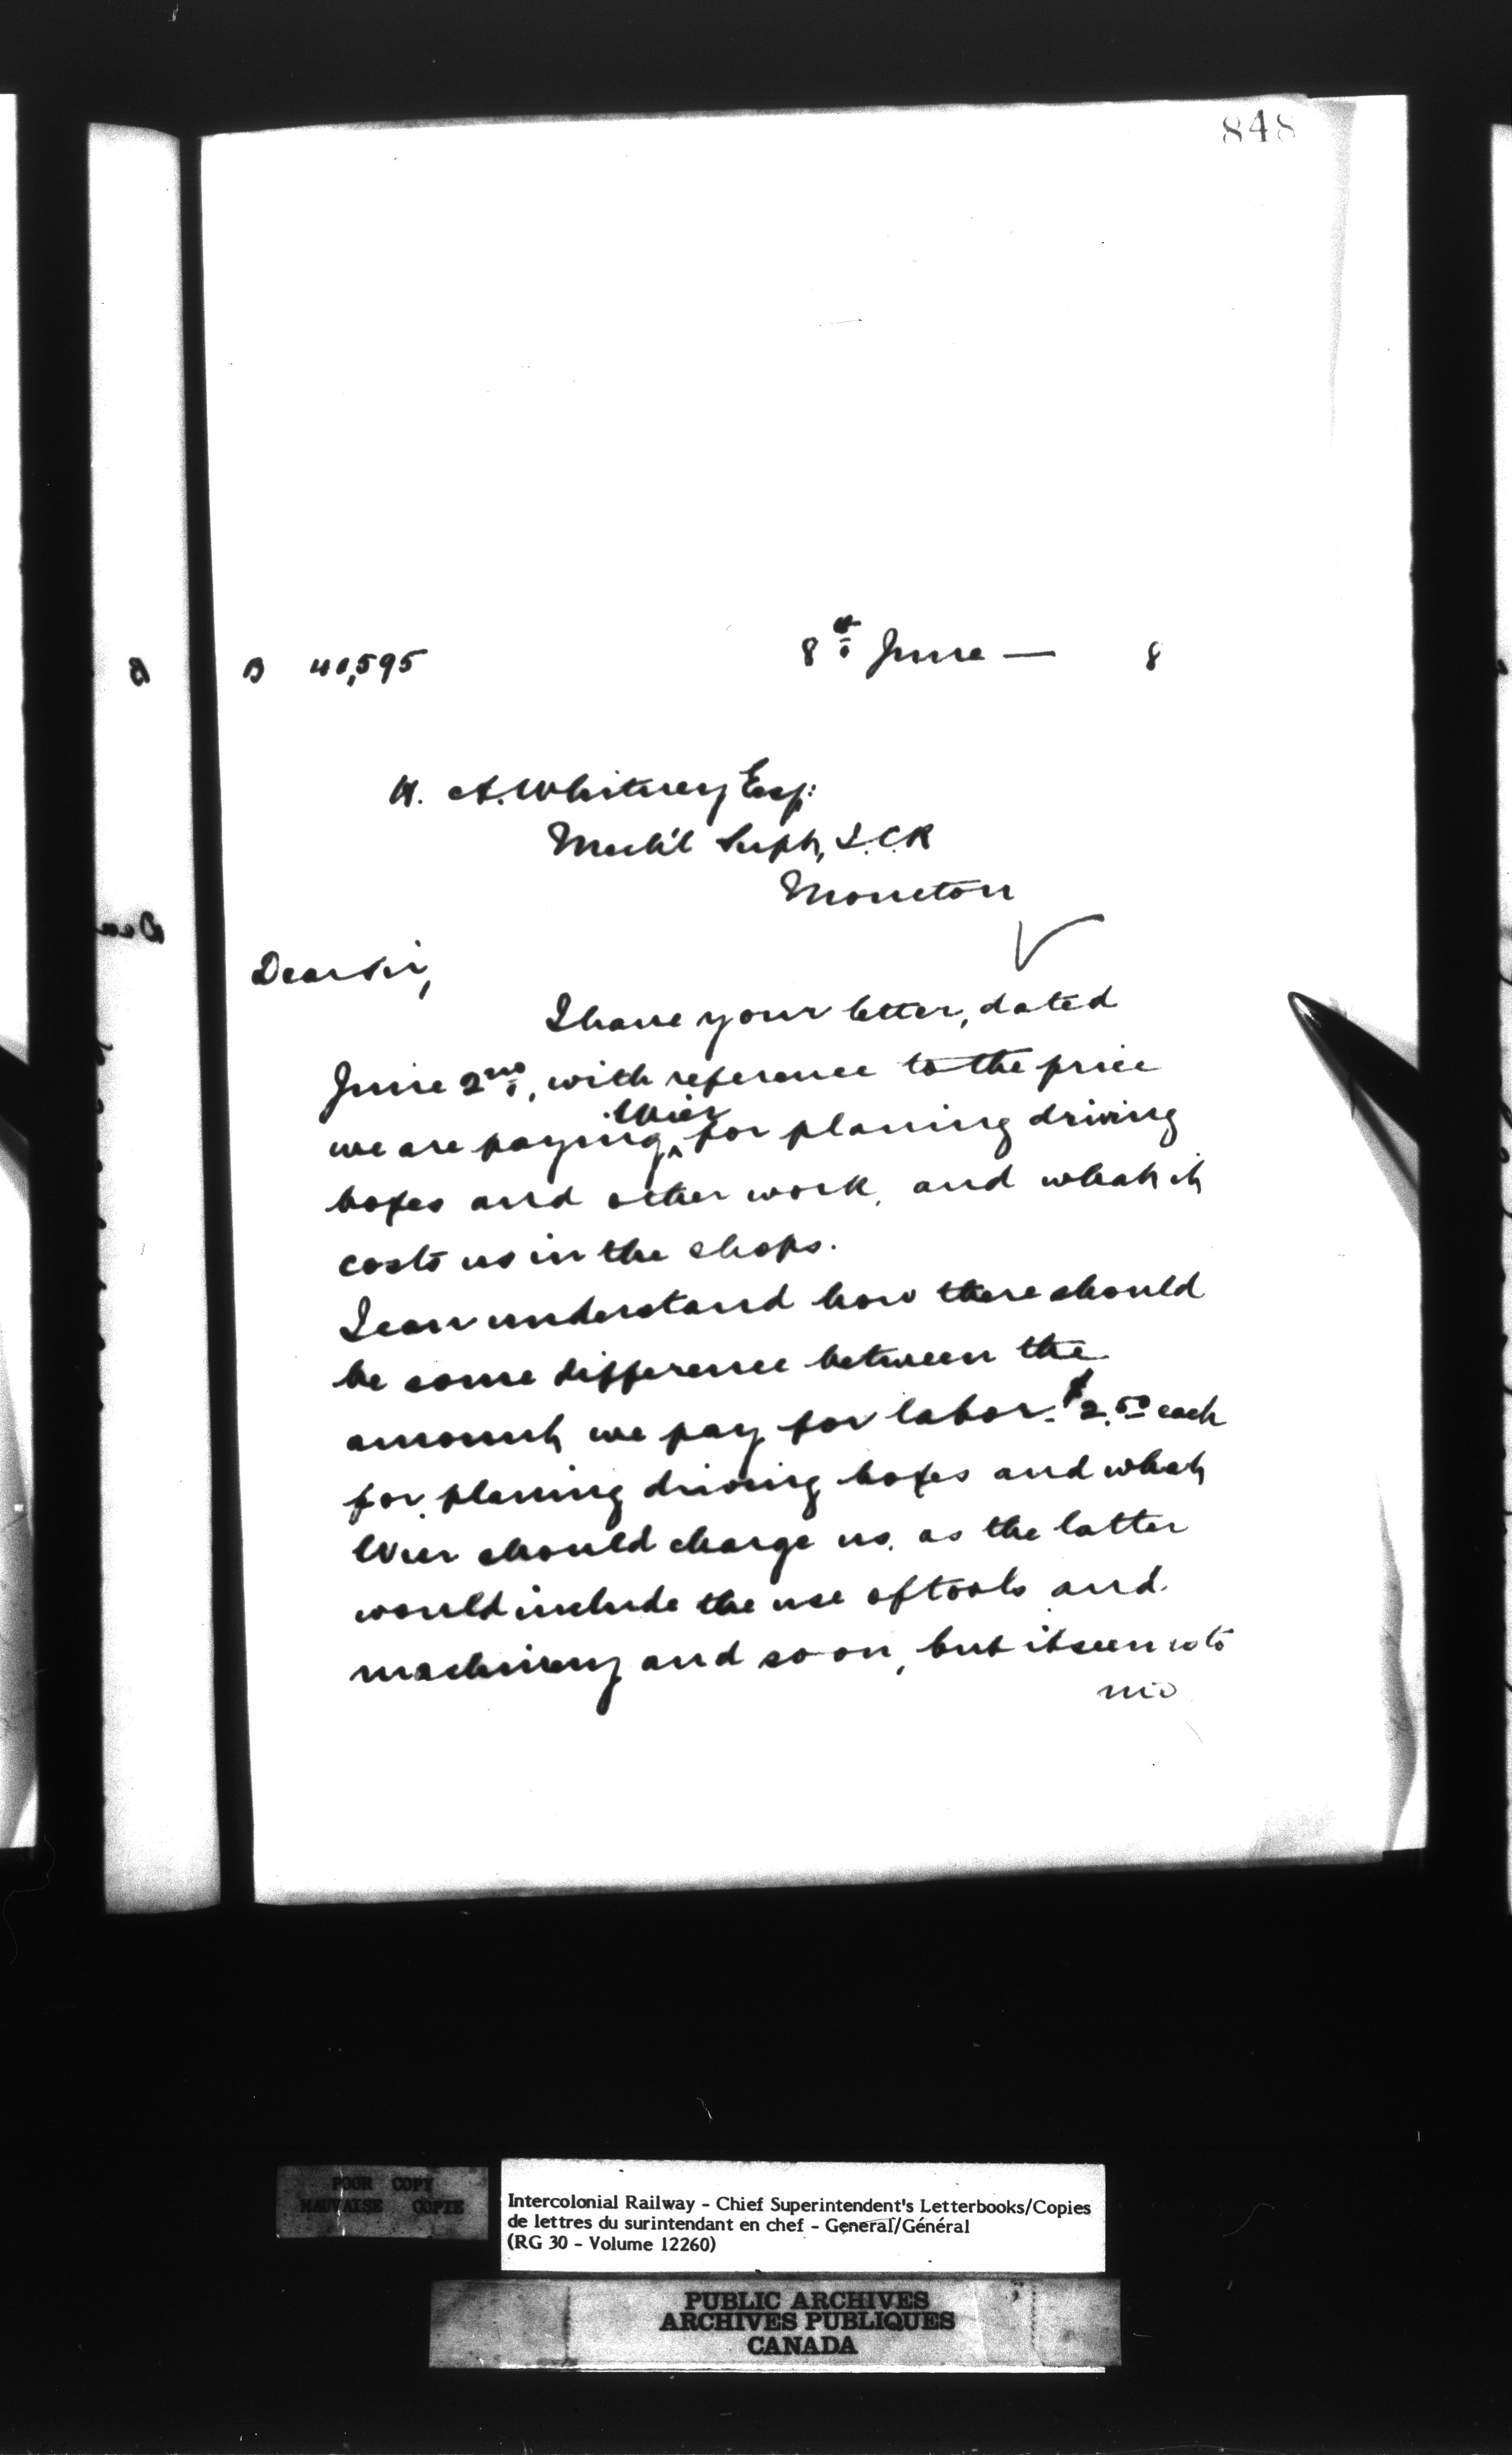 848
B 40,595 8th June — 8
H. A. Whitney Esq:
Mech'l Supt, I.C.R
Moncton
Dear Sir,
I have your letter, dated
June 2nd, with reference to the price
we are paying Wier for planing driving
boxes and other work, and what it
costs us in the shops.
I can understand how there should
be some difference between the
amount we pay for labor $2.50 each
for planing driving boxes and what
Wier should charge us, as the latter
would include the use of tools and
machinery and so on, but it seems to
me
POOR COPY
MAUVAISE COPIE
Intercolonial Railway - Chief Superintendent's Letterbooks/Copies
de lettres du surintendant en chef - General/Général
(RG 30 - Volume 12260)
PUBLIC ARCHIVES
ARCHIVES PUBLIQUES
CANADA